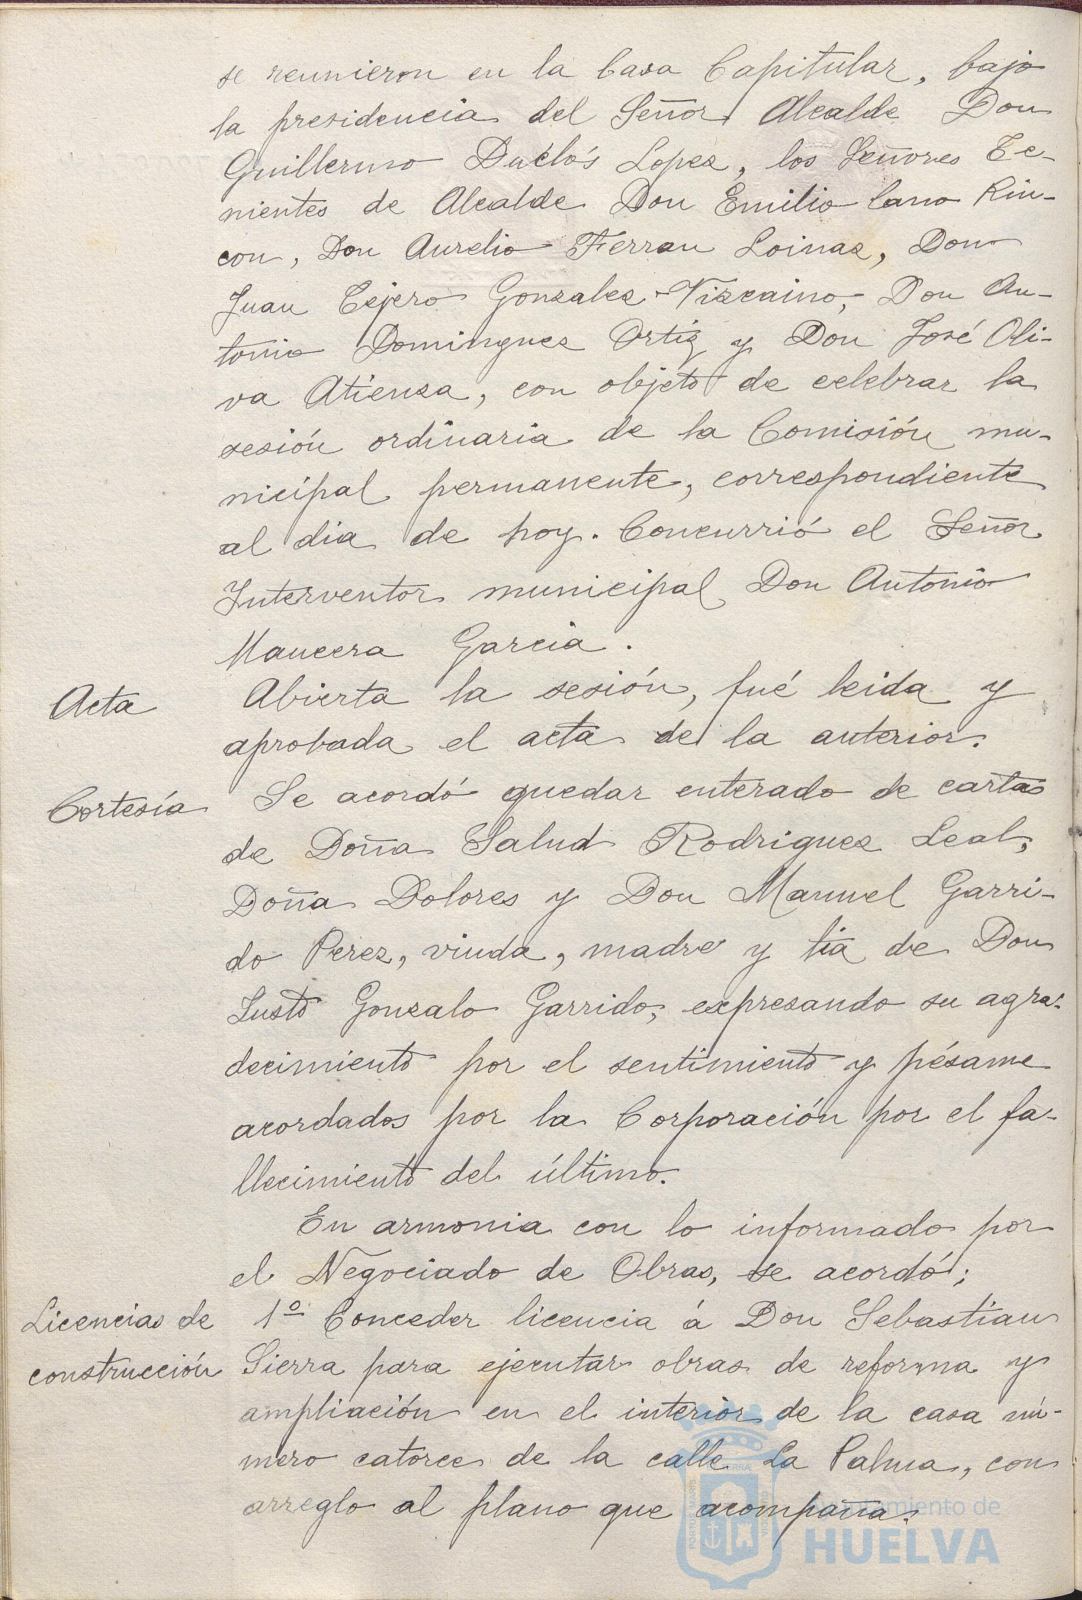 se reunieron en la Casa Capitular, bajo
la presidencia del Señor Alcalde Don
Guillermo Duclós Lopez, los Señores Te-
nientes de Alcalde Don Emilio Cano Rin-
con, Don Aurelio Ferran Loinaz, Don
Juan Tejero Gonzalez-Vizcaino, Don An-
tonio Dominguez Ortiz y Don José Oli-
va Atienza, con objeto de celebrar la
sesión ordinaria de la Comisión mu-
nicipal permanente, correspondiente
al dia de hoy. Concurrió el Señor
Interventor municipal Don Antonio
Mancera Garcia.
Acta Abierta la sesión, fué leida y
aprobada el acta de la anterior.
Cortesía Se acordó quedar enterado de cartas
de Doña Salud Rodriguez Leal,
Doña Dolores y Don Manuel Garri-
do Perez, viuda, madre y tia de Don
Justo Gonzalo Garrido, expresando su agra-
decimiento por el sentimiento y pésame
acordados por la Corporación por el fa-
llecimiento del último.
En armonia con lo informado por
el Negociado de Obras, se acordó;
Licencias de 1º Conceder licencia á Don Sebastian
construcción Sierra para ejecutar obras de reforma y
ampliación en el interior de la casa nú-
mero catorce de la calle La Palma, con
arreglo al plano que acompaña.
Ayuntamiento de
HUELVA